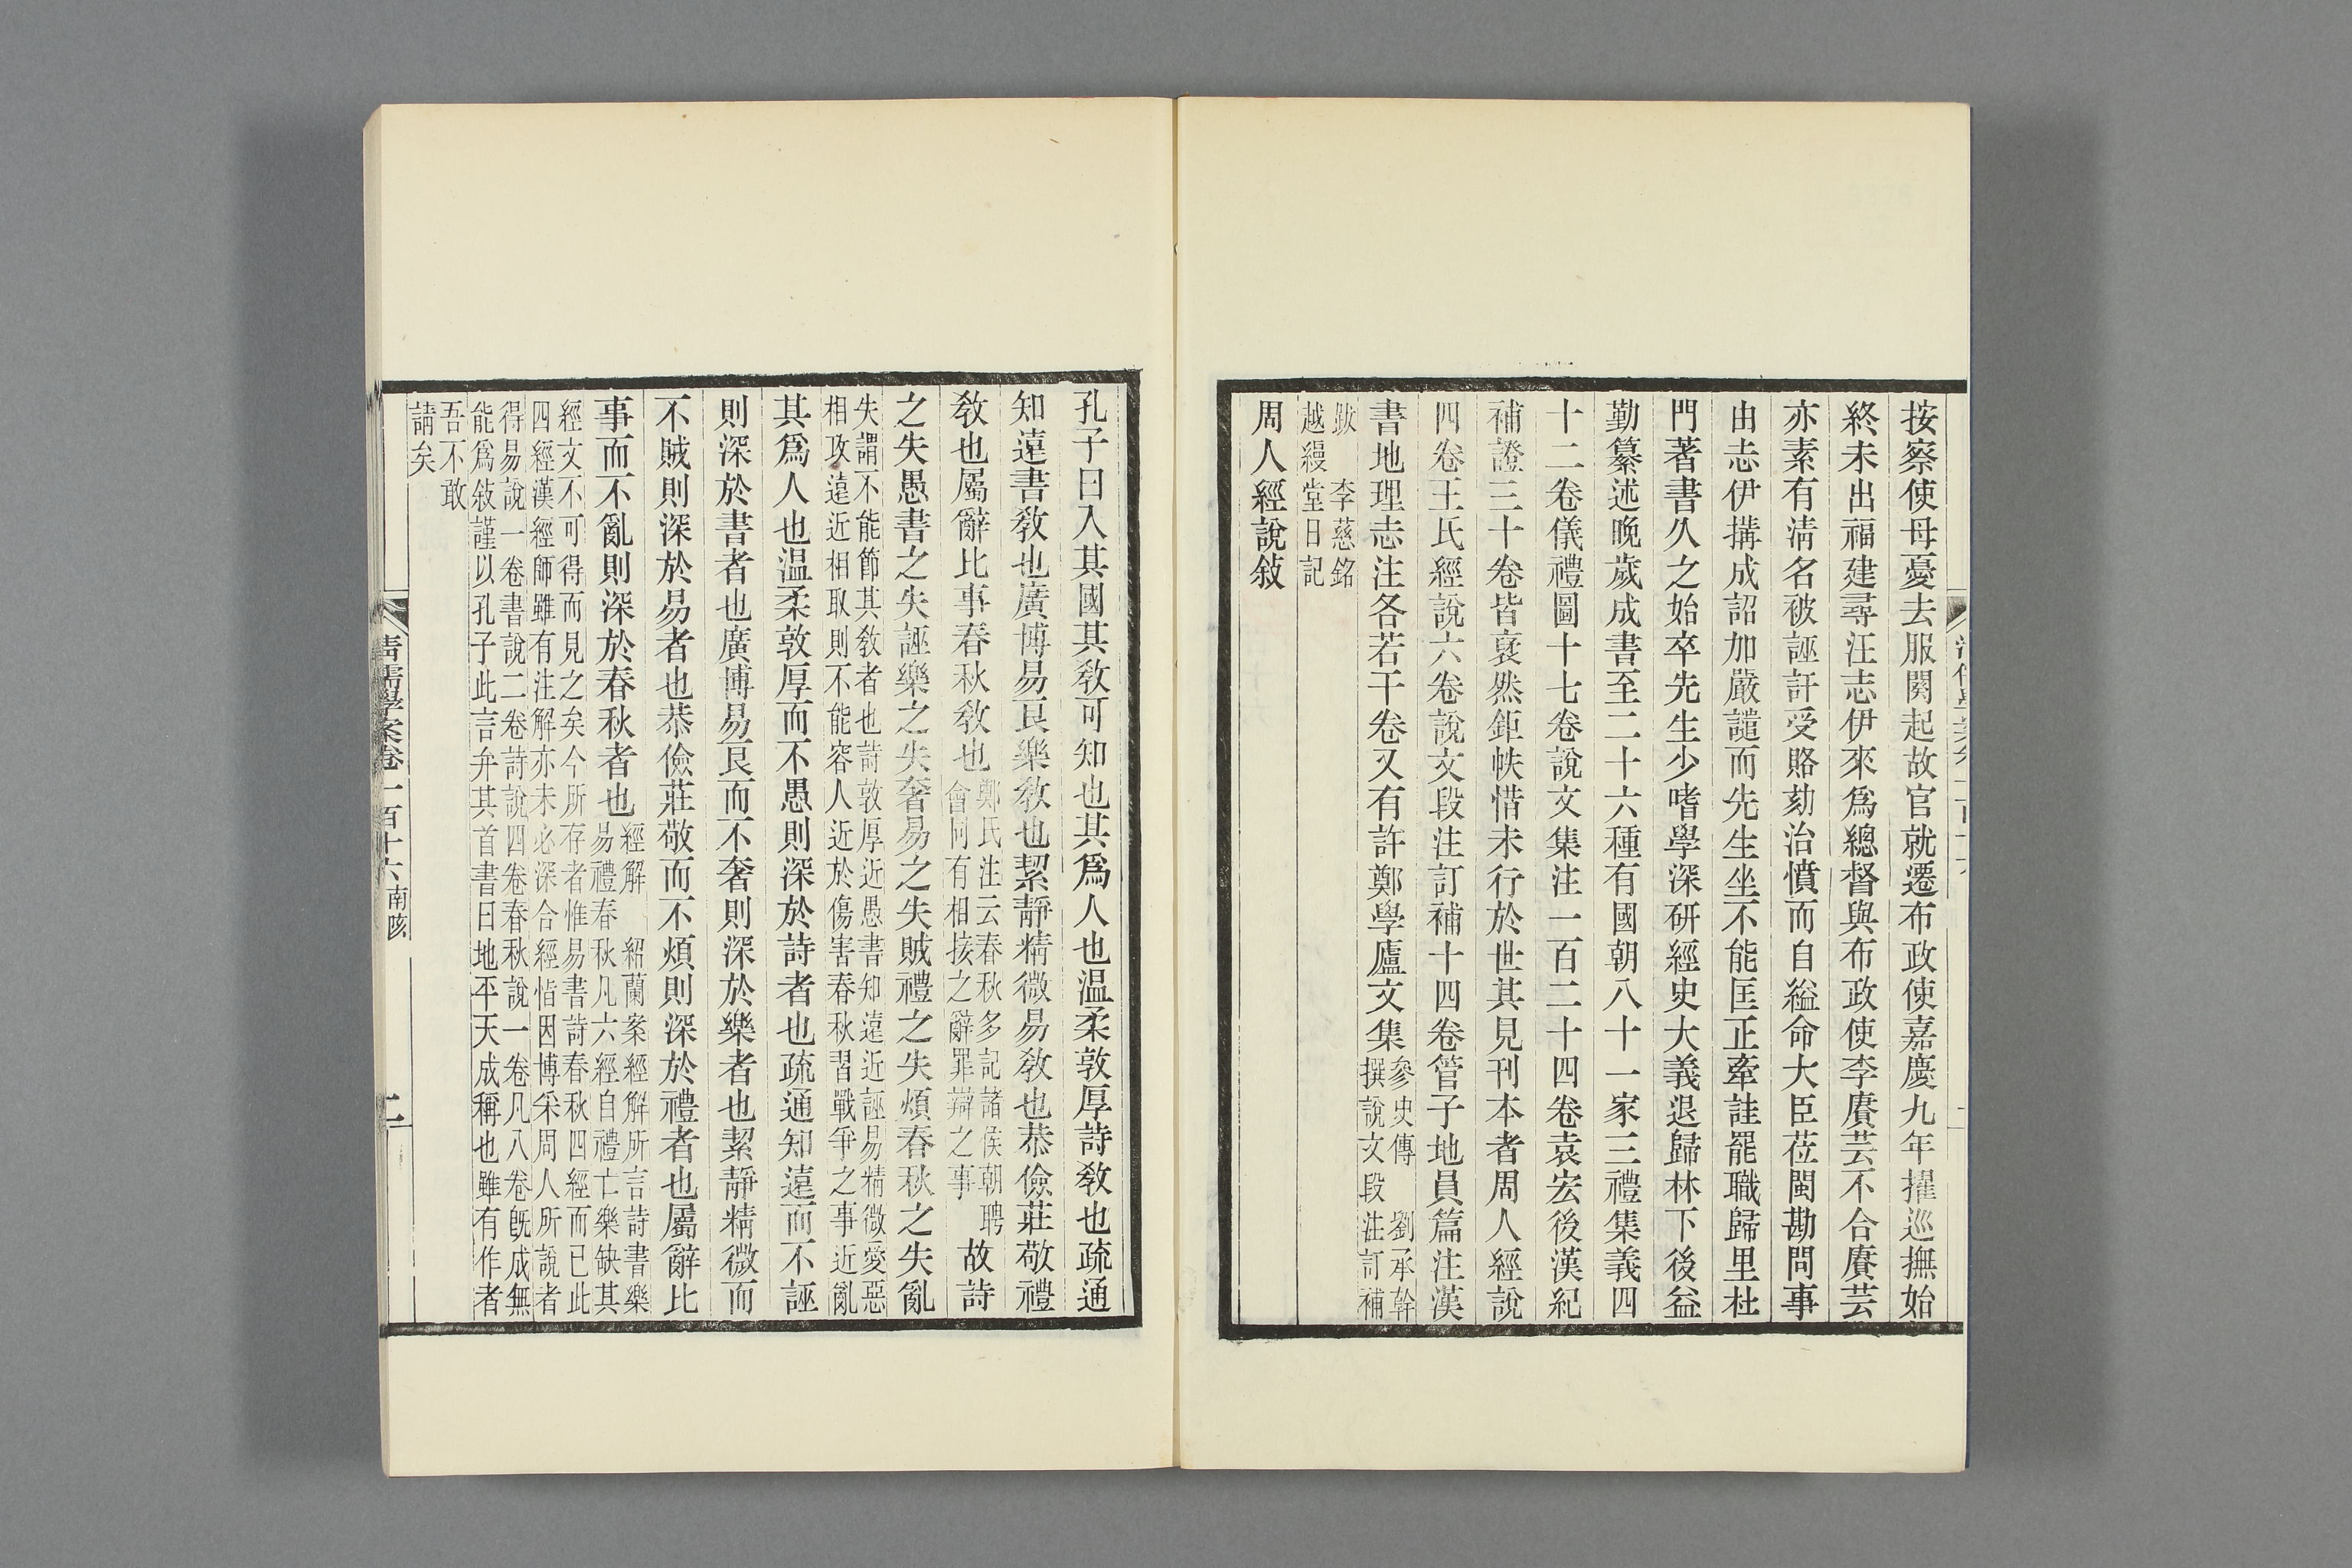 按察使母憂去服闋起故官就遷布政使嘉慶九年擢巡撫始
終未出福建尋汪志伊來爲總督與布政使李賡芸不合賡芸
亦素有淸名被誣訐受賂劾治憤而自縊命大臣莅閩勘問事
由志伊搆成詔加嚴譴而先生坐不能匡正牽詿罷職歸里杜
門著書久之始卒先生少嗜學深研經史大義退歸林下後益
勤纂述晚歲成書至二十六種有國朝八十一家三禮集義四
十二卷儀禮圖十七卷說文集注一百二十四卷袁宏後漢紀
補證三十卷皆裒然鉅帙惜未行於世其見刊本者周人經說
四卷王氏經說六卷說文段注訂補十四卷管子地員篇注漢
書地理志注各若干卷又有許鄭學廬文集
參史傳　劉承幹
撰說文段注訂補
跋　李慈銘
越縵堂日記
周人經說敍
孔子曰入其國其敎可知也其爲人也温柔敦厚詩敎也疏通
知遠書敎也廣博易良樂敎也絜靜精微易敎也恭儉莊敬禮
敎也屬辭比事春秋敎也
鄭氏注云春秋多記諸侯朝聘
會同有相接之辭罪辯之事
故詩
之失愚書之失誣樂之失奢易之失賊禮之失煩春秋之失亂
失謂不能節其敎者也詩敦厚近愚書知遠近誣易精微愛惡
相攻遠近相取則不能容人近於傷害春秋習戰爭之事近亂
其爲人也温柔敦厚而不愚則深於詩者也疏通知遠而不誣
則深於書者也廣博易良而不奢則深於樂者也絜靜精微而
不賊則深於易者也恭儉莊敬而不煩則深於禮者也屬辭比
事而不亂則深於春秋者也
經解　紹蘭案經解所言詩書樂
易禮春秋凡六經自禮亡樂缺其
經文不可得而見之矣今所存者惟易書詩春秋四經而已此
四經漢經師雖有注解亦未必深合經恉因博采周人所說者
得易說一卷書說二卷詩說四卷春秋說一卷凡八卷旣成無
能爲敍謹以孔子此言弁其首書曰地平天成稱也雖有作者
吾不敢
請矣
淸儒學案卷一百十六南陔
二